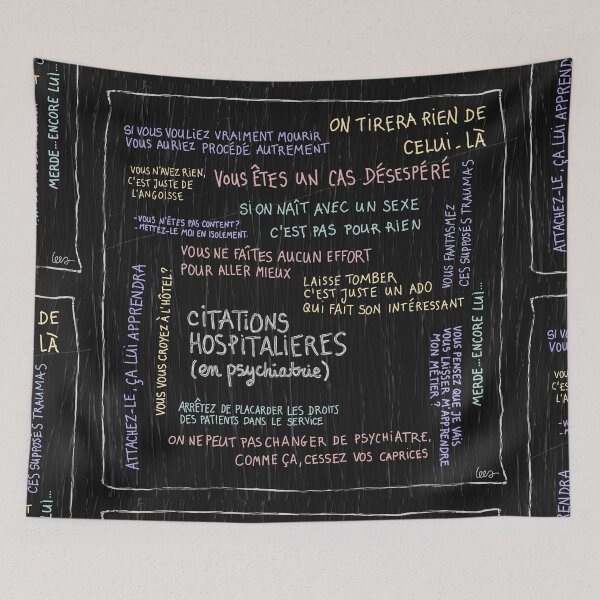 SI VOUS VOULIEZ VRAIMENT MOURIR
VOUS AURIEZ PROCÉDÉ AUTREMENT
ON TIRERA RIEN DE
CELUI-LÀ
VOUS N'AVEZ RIEN,
C'EST JUSTE DE
L'ANGOISSE
VOUS ÊTES UN CAS DÉSESPÉRÉ
SI ON NAÎT AVEC UN SEXE
C'EST PAS POUR RIEN
-VOUS N'ÊTES PAS CONTENT?
-METTEZ-LE MOI EN ISOLEMENT.
VOUS FANTASMEZ
CES SUPPOSÉS TRAUMAS
VOUS NE FAÎTES AUCUN EFFORT
POUR ALLER MIEUX
LAISSE TOMBER
C'EST JUSTE UN ADO
QUI FAIT SON INTÉRESSANT
ATTACHEZ-LE, ÇA LUI APPRENDRA
VOUS VOUS CROYEZ À L'HÔTEL?
CITATIONS
HOSPITALIERES
(en psychiatrie)
MERDE...ENCORE LUI...
VOUS PENSEZ QUE JE VAIS
VOUS LAISSER M'APPRENDRE
MON MÉTIER ?
ARRÊTEZ DE PLACARDER LES DROITS
DES PATIENTS DANS LE SERVICE
ON NE PEUT PAS CHANGER DE PSYCHIATRE,
COMME ÇA, CESSEZ VOS CAPRICES
lees
MERDE...ENCORE LUI...
lees
DE
LÀ
CES SUPPOSÉS TRAUMAS
LUI...
ATTACHEZ-LE, ÇA LUI APPRENDRA
SI VO
VOUS
VOU
C'ES
L'A